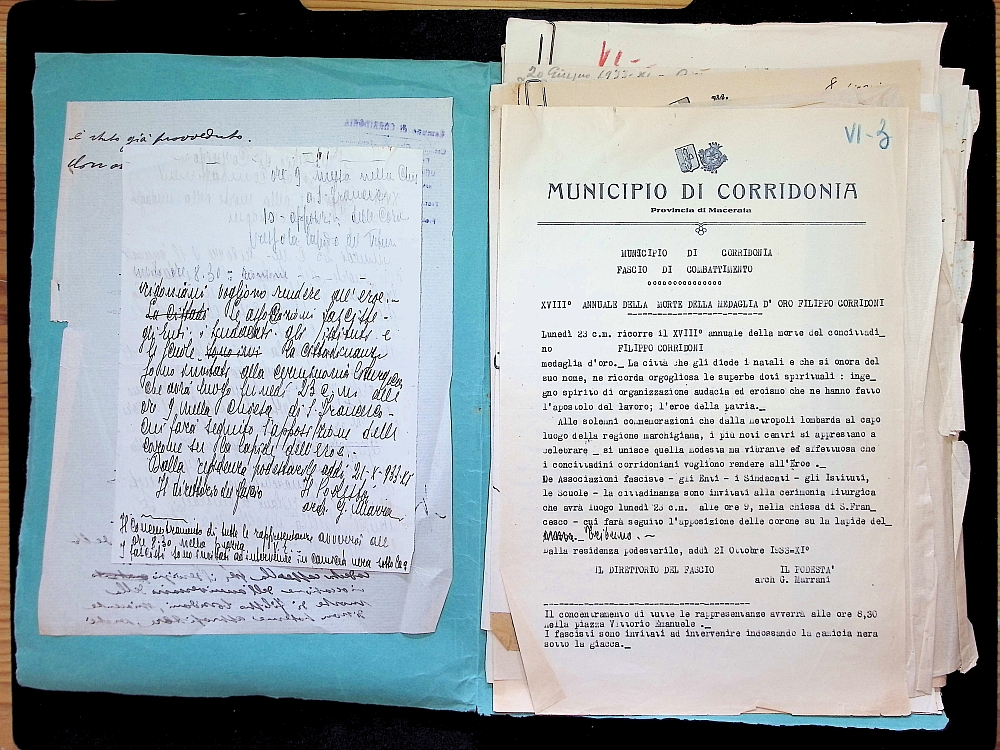 è stato già provveduto.
ore 9 messa nella Chiesa
a S. Francesco
10 - apposiz. delle Coro
ore 8.30 = riunione
vogliono rendere all'eroe. -
La Città Le associazioni fasciste -
gli Enti i Sindacati gli Istituti e
le scuole la cittadinanza
sono invitati alla cerimonia liturgica
che avrà luogo lunedì 23 c.m. alle
ore 9 nella Chiesa di S. Francesco -
cui farà seguito l'apposizione delle
corone su la lapide dell'eroe. -
Dalla residenza podestarile addì 21-X-933-XI
Il direttorio del fascio Il Podestà
arch. G. Marrani
Il concentramento di tutte le rappresentanze avverrà alle
ore 8:30 nella piazza
I fascisti sono invitati ad intervenire in camicia nera sotto la g
VI-
20 Giugno 1933-XI-
VI-3
MUNICIPIO DI CORRIDONIA
Provincia di Macerata
MUNICIPIO DI CORRIDONIA
FASCIO DI COMBATTIMENTO
ooooooooooooooo
XVIII° ANNUALE DELLA MORTE DELLA MEDAGLIA D' ORO FILIPPO CORRIDONI
Lunedì 23 c.m. ricorre il XVIII° annuale della morte del concittadi_
no FILIPPO CORRIDONI
medaglia d'oro._ La città che gli diede i natali e che si onora del
suo nome, ne ricorda orgogliosa le superbe doti spirituali : inge_
gno spirito di organizzazione audacia ed eroismo che ne hanno fatto
l'apostolo del lavoro; l'eroe della patria._
Alle solenni commemorazioni che dalla metropoli lombarda al capo
luogo della regione marchigiana, i più noti centri si apprestano a
celebrare _ si unisce quella modesta ma vibrante ed affettuosa che
i concittadini corridoniani vogliono rendere all'Eroe ._
De Associazioni fasciste - gli Enti - i Sindacati - gli Istituti,
le Scuole - la cittadinanza sono invitati alla cerimonia liturgica
che avrà luogo lunedì 23 c.m. alle ore 9, nella chiesa di S.Fran_
cesco - cui farà seguito l'apposizione delle corone su la lapide del
Tribuno. -
Dalla residenza podestarile, addì 21 Ottobre 1933-XI°
IL DIRETTORIO DEL FASCIO IL PODESTA'
arch G. Marrani
Il concentramento di tutte le rappresentanze avverrà alle ore 8,30
nella piazza Vittorio Emanuele ._
I fascisti sono invitati ad intervenire indossando la camicia nera
sotto la giacca._